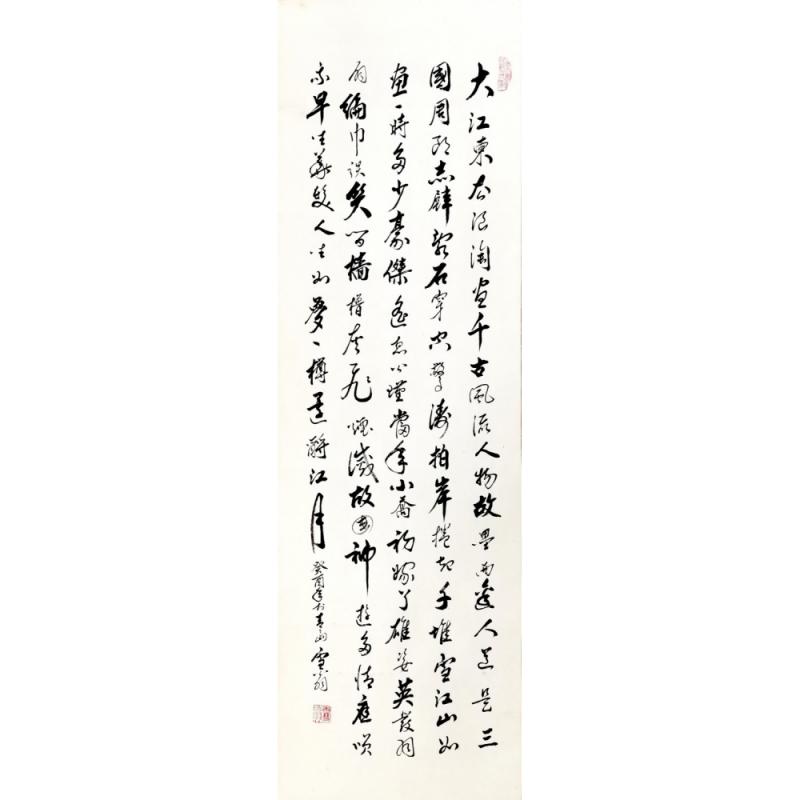 大江東去浪淘盡千古風流人物故壘西邊人道是三
國周郎赤壁亂石穿空驚濤拍岸捲起千堆雪江山如
畫一時多少豪傑遙想公瑾當年小喬初嫁了雄姿英發羽
扇綸巾談笑間檣櫓灰飛煙滅故國神遊多情應咲
我早生華髮人生如夢一樽還酹江月
癸酉年於青 雪翁